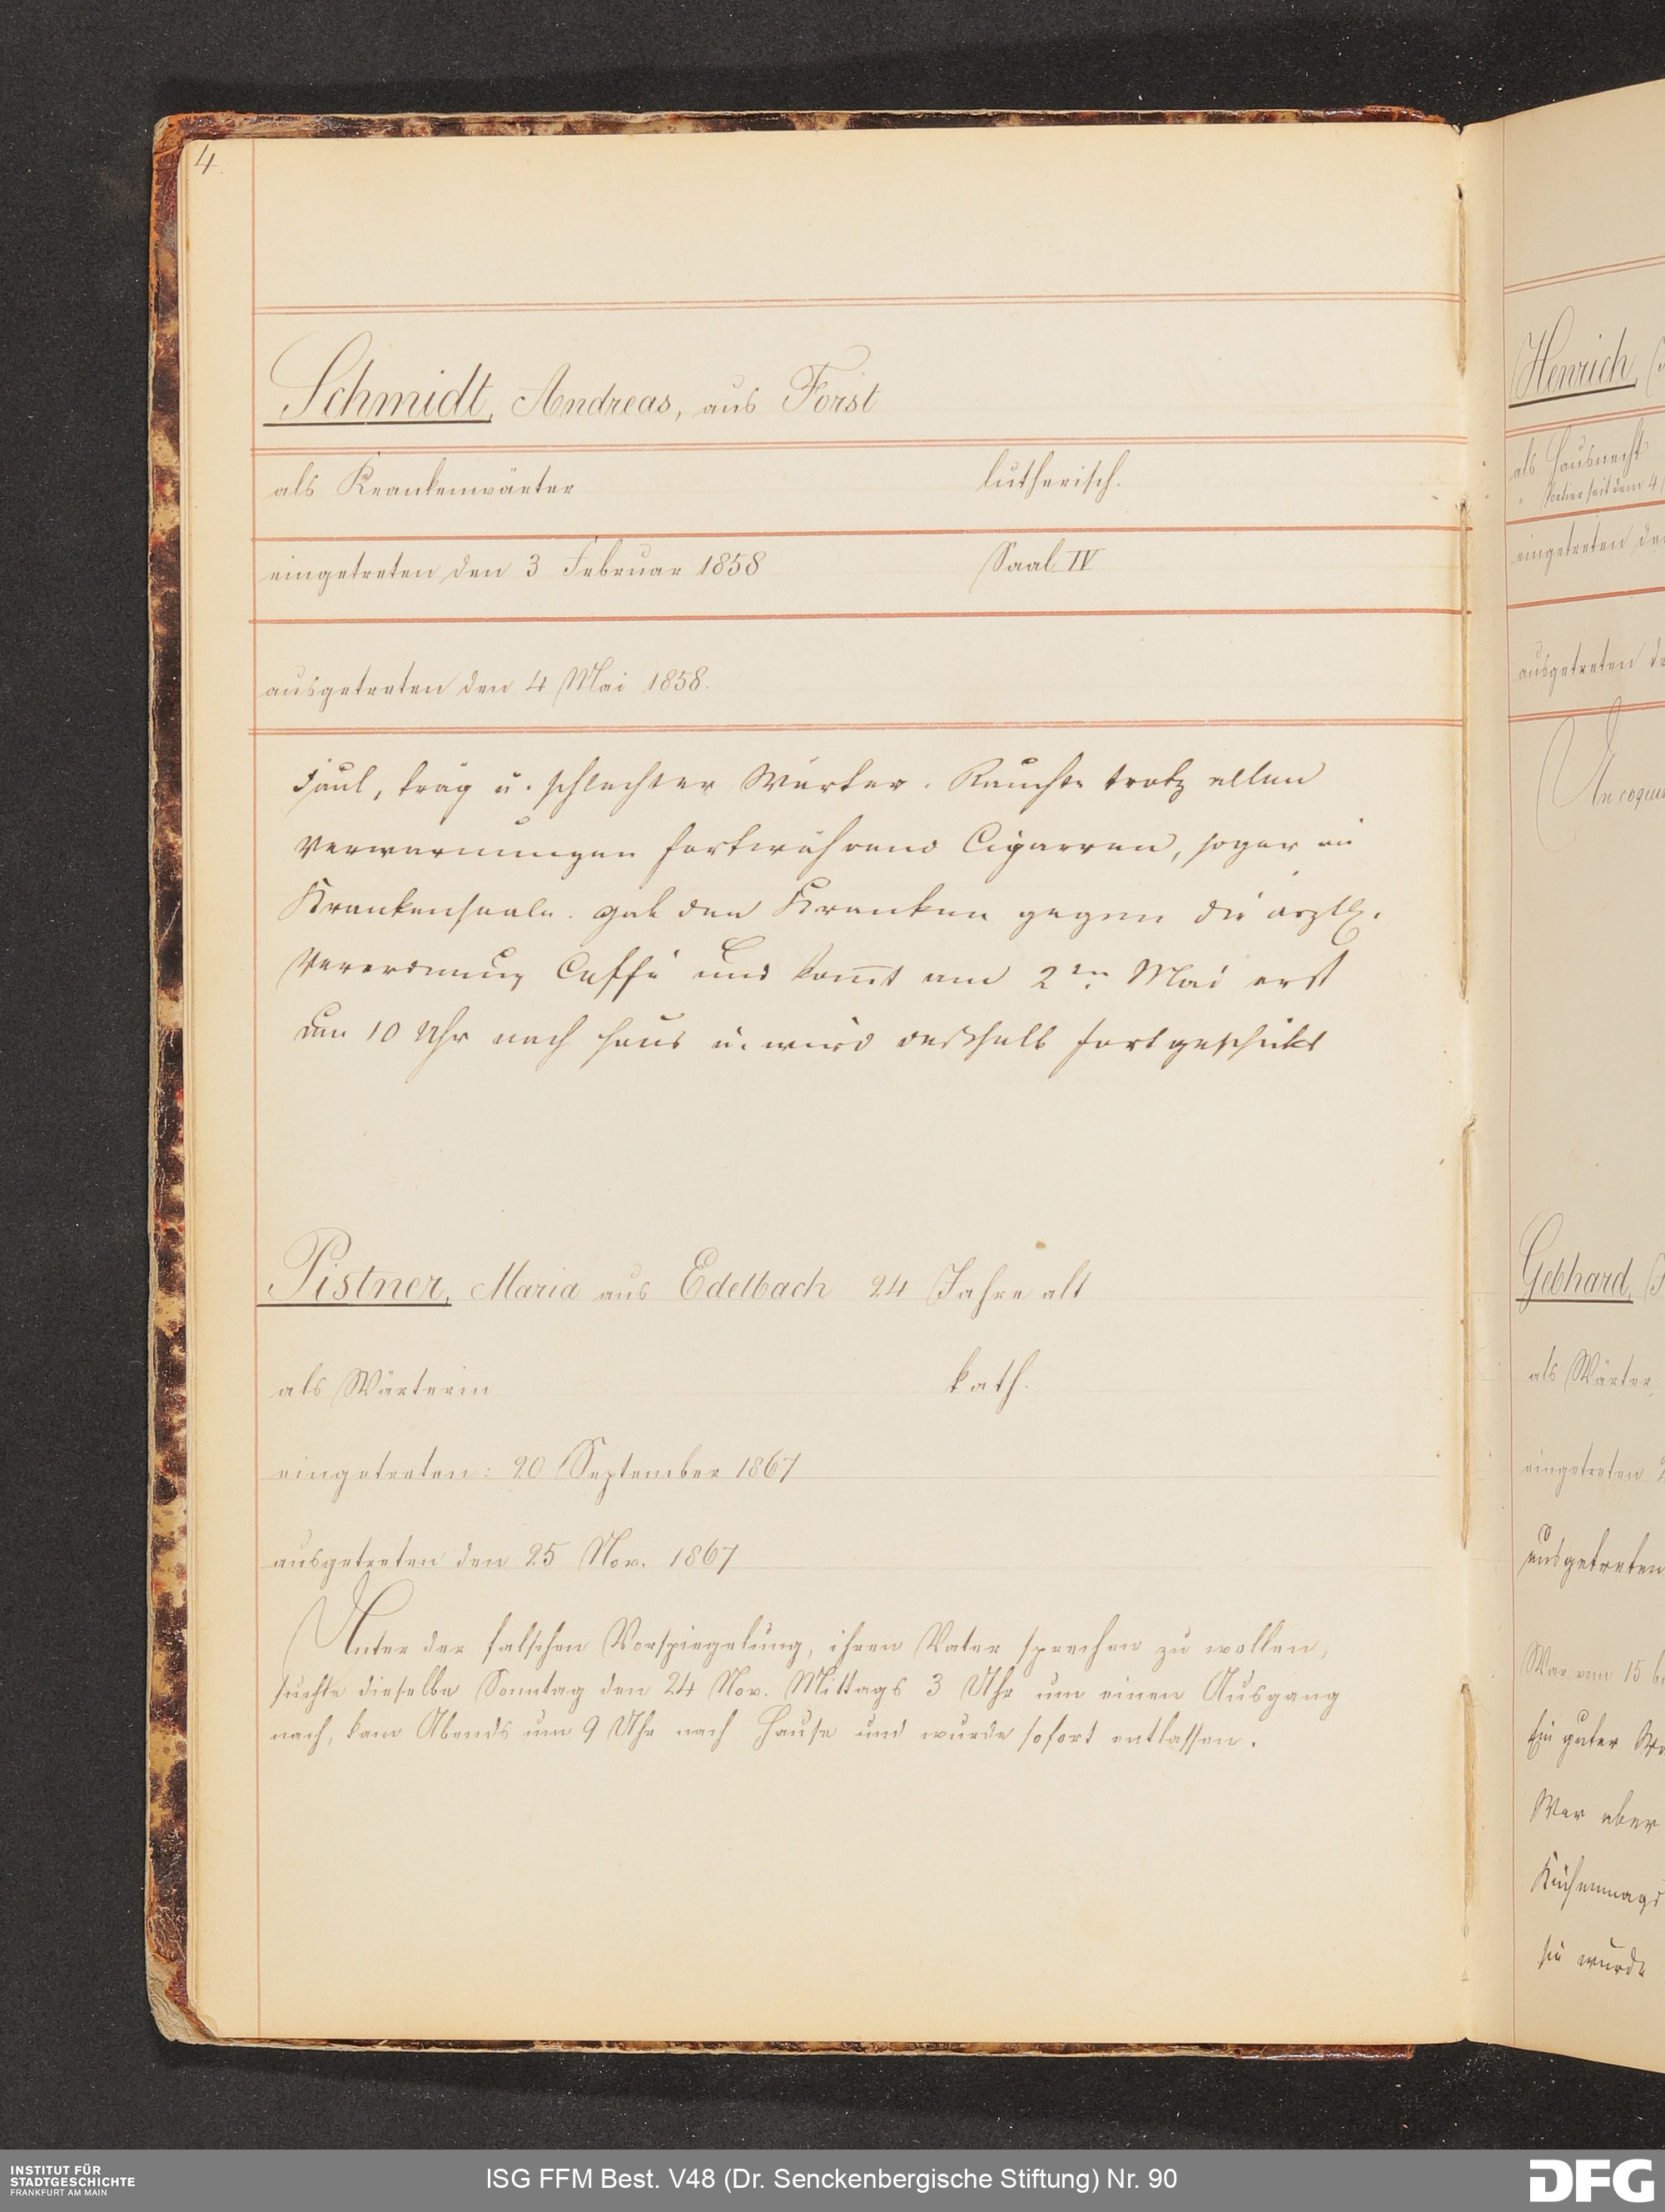 4.
Schmidt, Andreas, aus Forst
als Krankenwärter lutherisch.
eingetreten den 3 Februar 1858 Saal IV
ausgetreten den 4 Mai 1858.
Faul, träg u. schlechter Wärter. Rauchte trotz allen
Verwarnungen fortwährend Cigarren, sogar im
Krankensaale. gab den Kranken gegen die ärztl.
Verordnung Caffé und kom̄t am 2ten Mai erst
um 10 Uhr nach Haus u. wird deßhalb fortgeschickt
Pistner, Maria aus Edelbach 24 Jahre alt
als Wärterin kath.
eingetreten: 20 September 1867
ausgetreten den 25 Nov. 1867
Unter der falschen Vorspiegelung, ihren Vater sprechen zu wollen,
suchte dieselbe Sonntag den 24 Nov. Mittags 3 Uhr um einen Ausgang
nach, kam Abends um 9 Uhr nach Hause und wurde sofort entlassen.
Henrich,
als Hausnecht
" Portier seit dem 4
eingetreten den
ausgetreten
Gebhard,
als Wärter,
eingetreten
ausgetreten
War vom 15
Ein guter
War aber
Küchenmagd
sie wurde
INSTITUT FÜR
STADTGESCHICHTE
FRANKFURT AM MAIN
ISG FFM Best. V48 (Dr. Senckenbergische Stiftung) Nr. 90
DFG